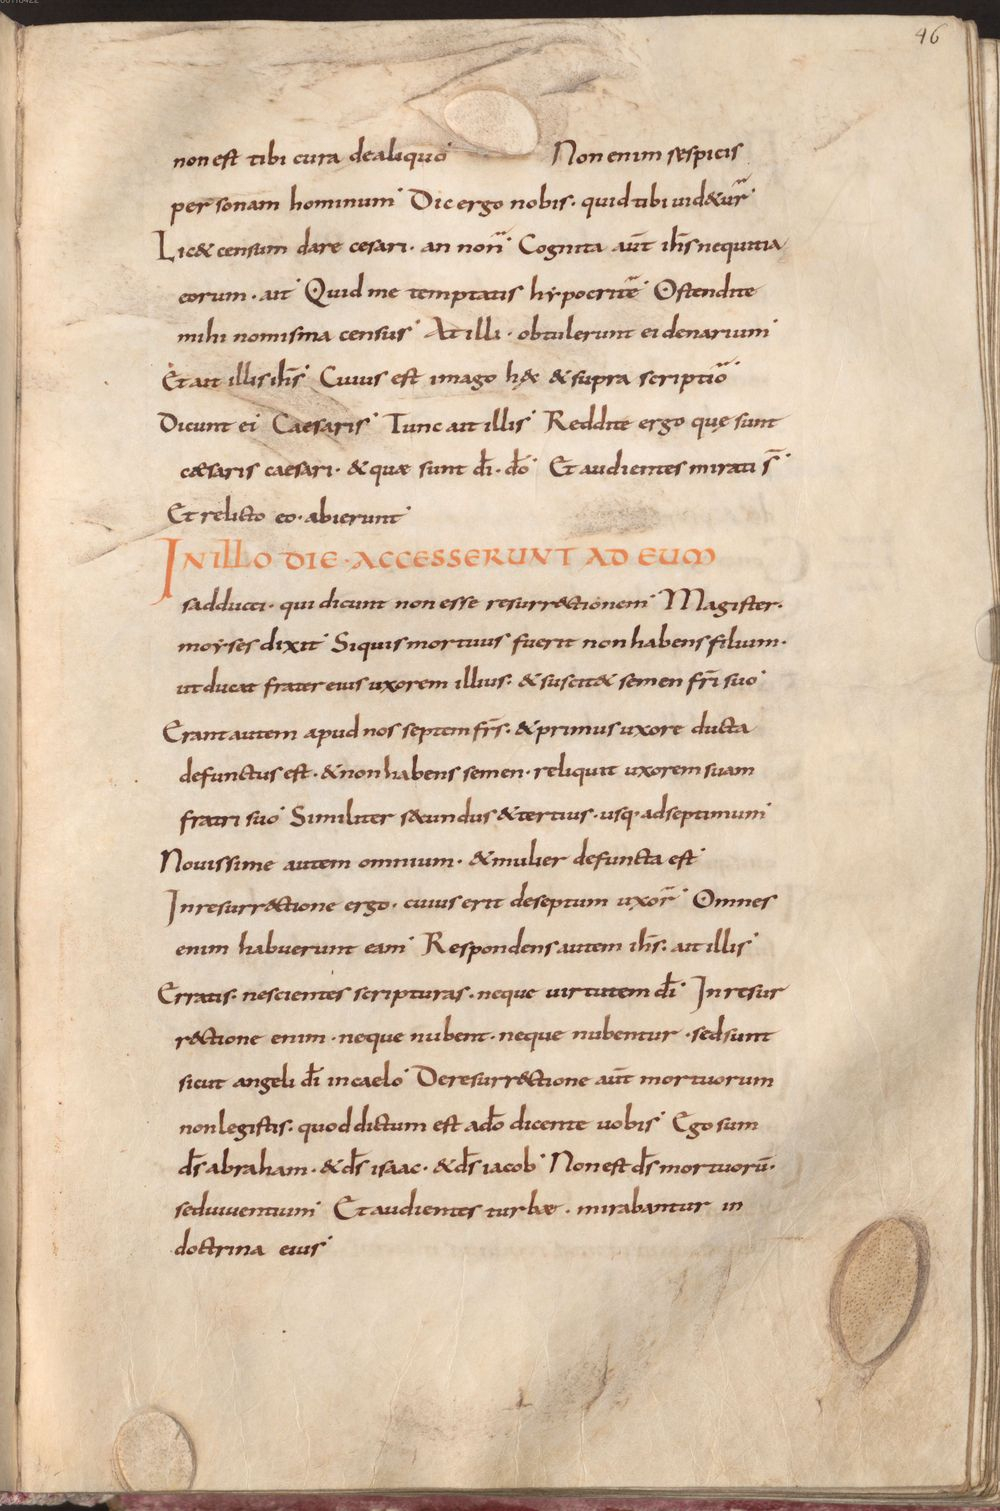 46
non est tibi cura de aliquo Non enim respicis
personam hominum. Dic ergo nobis. quid tibi uid&ur
Lic& censum dare cesari. an non. Cognita aūt ih̄s nequitia
eorum. ait. Quid me temptatis hypocritę. Ostendite
mihi nomisma census. At illi. obtulerunt ei denarium.
Et ait illis ih̄s. Cuius est imago hęc & supra scriptio
Dicunt ei Caesaris. Tunc ait illis. Reddite ergo quę sunt
cæsaris caesari. & quæ sunt dī. dō. Et audientes mirati s̄.
Et relicto eo. abierunt.
IN ILLO DIE. ACCESSERUNT AD EUM
sadducei. qui dicunt non esse resurrectionem. Magister.
moyses dixit. Si quis mortuus fuerit non habens filium.
ut ducat frater eius uxorem illius. & suscit& semen fr̄i suo.
Erant autem apud nos septem fr̄s. & primus uxore ducta
defunctus est. & non habens semen. reliquit uxorem suam
fratri suo. Similiter secundus & tertius. usq. ad septimum.
Nouissime autem omnium. & mulier defuncta est.
In resurrectione ergo. cuius erit de septem uxor. Omnes
enim habuerunt eam. Respondens autem ih̄s. ait illis.
Erratis. nescientes scripturas. neque uirtutem dī. In resur
rectione enim. neque nubent. neque nubentur. sed sunt
sicut angeli dī in caelo. De resurrectione aūt mortuorum
non legistis. quod dictum est a dō dicente uobis. Ego sum
d̄s abraham. & d̄s isaac. & d̄s iacob. Non est d̄s mortuorū.
sed uiuentium. Et audientes turbæ. mirabantur in
doctrina eius.